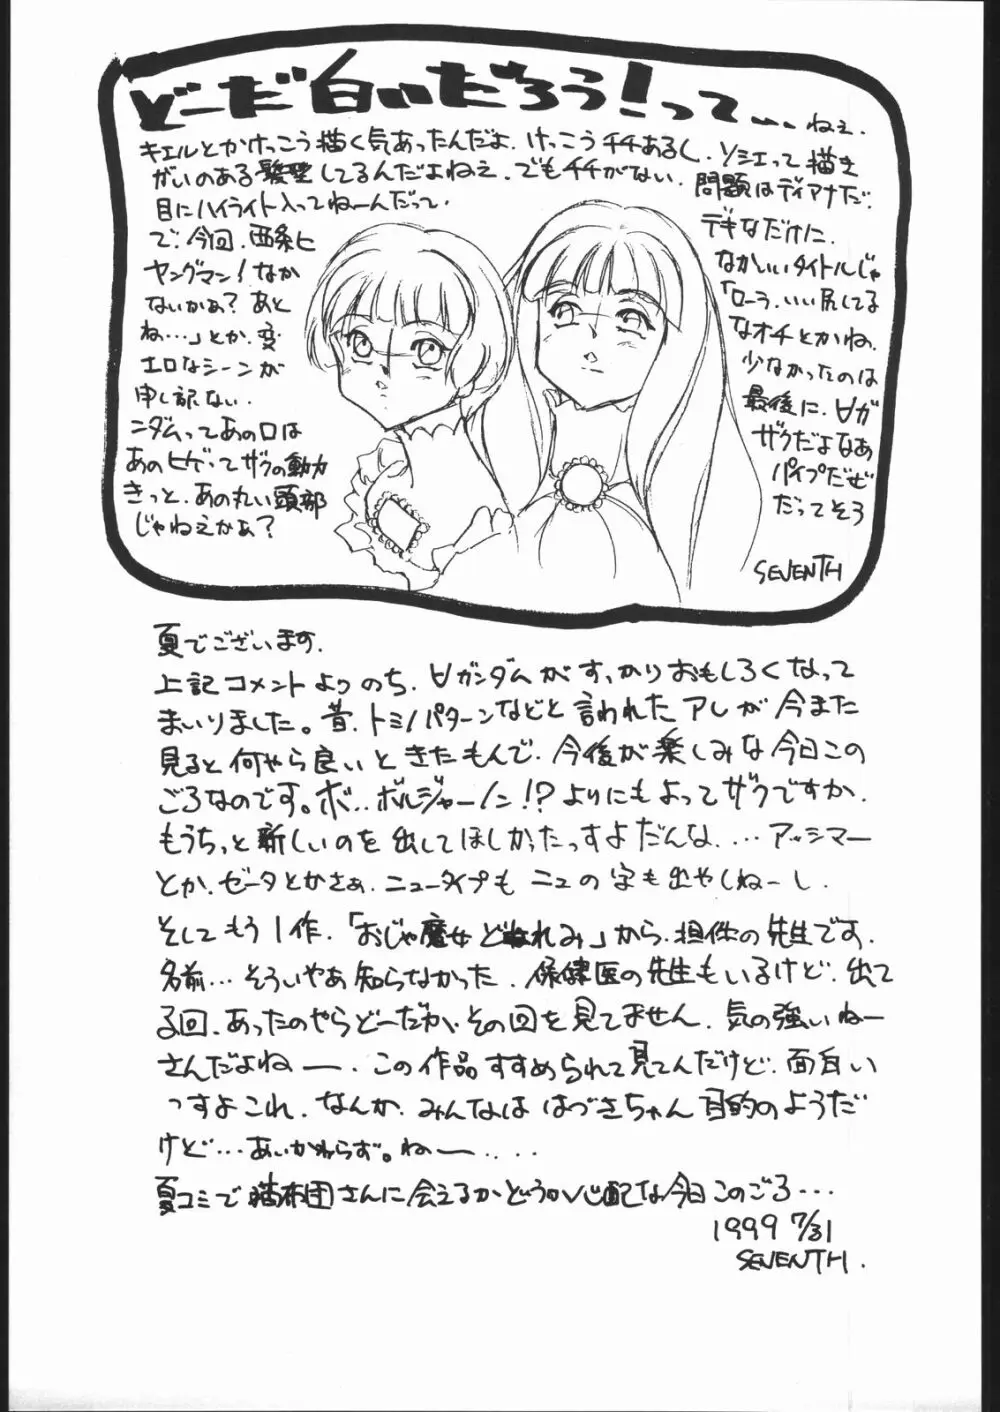 どーだ白いだろう!って… ねぇ.
キエルとかけっこう描く気あったんだよ. けっこうチチあるし. ソシエって描き
がいのある髪型してるんだよねぇ. でもチチがない. 問題はディアナだ.
目にハイライト入ってねーんだって.
で. 今回. 西条ヒ
ヤングマン! なか
ないかぁ? あと
ね…」とか. 変
エロなシーンが
申し訳ない.
ニダムってあの口は
あのヒゲってザクの動力
きっと. あの丸い頭部
じゃねえかぁ?
デキなだけに.
なかいいタイトルじゃ
「ローラ. いい尻してる
なオチとかね.
少なかったのは
最後に. ∀ガ
ザクだよなあ
パイプだぜ
だってそう
SEVENTH
夏でございます.
上記コメントよりのち. ∀ガンダムがすっかりおもしろくなって
まいりました。昔. トミノパターンなどと言われたアレが今また
見ると何やら良いときたもんで. 今後が楽しみな今日この
ごろなのです。ボ.. ボルジャーノン!? よりにもよってザクですか.
もうちっと新しいのを出してほしかったっすよだんな.… アッシマー
とか. ゼータとかさぁ. ニュータイプもニュの字も出やしねーし.
そしてもう1作. 「おじゃ魔女どれみ」から. 担任の先生です.
名前… そういやぁ知らなかった. 保健医の先生もいるけど. 出て
る回. あったのやらどーだか. その回を見てません. 気の強いねー
さんだよねー. この作品すすめられて見てんだけど. 面白い
っすよこれ. なんか. みんなははづきちゃん目的のようだ
けど… あいかわらず。ねー....
夏コミで猫布団さんに会えるかどうか心配な今日このごろ…
1999 7/31
SEVENTH.